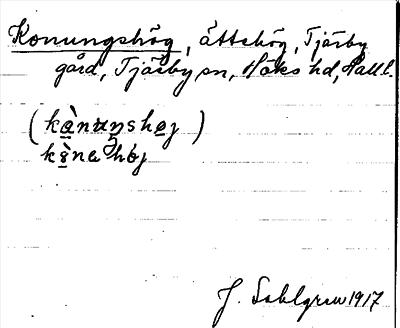 Konungshög, ättehög, Tjärby
gård, Tjärby sn, Höks hd, Hall.
(kònuŋshøj)
høj
J. Sahlgren 1917